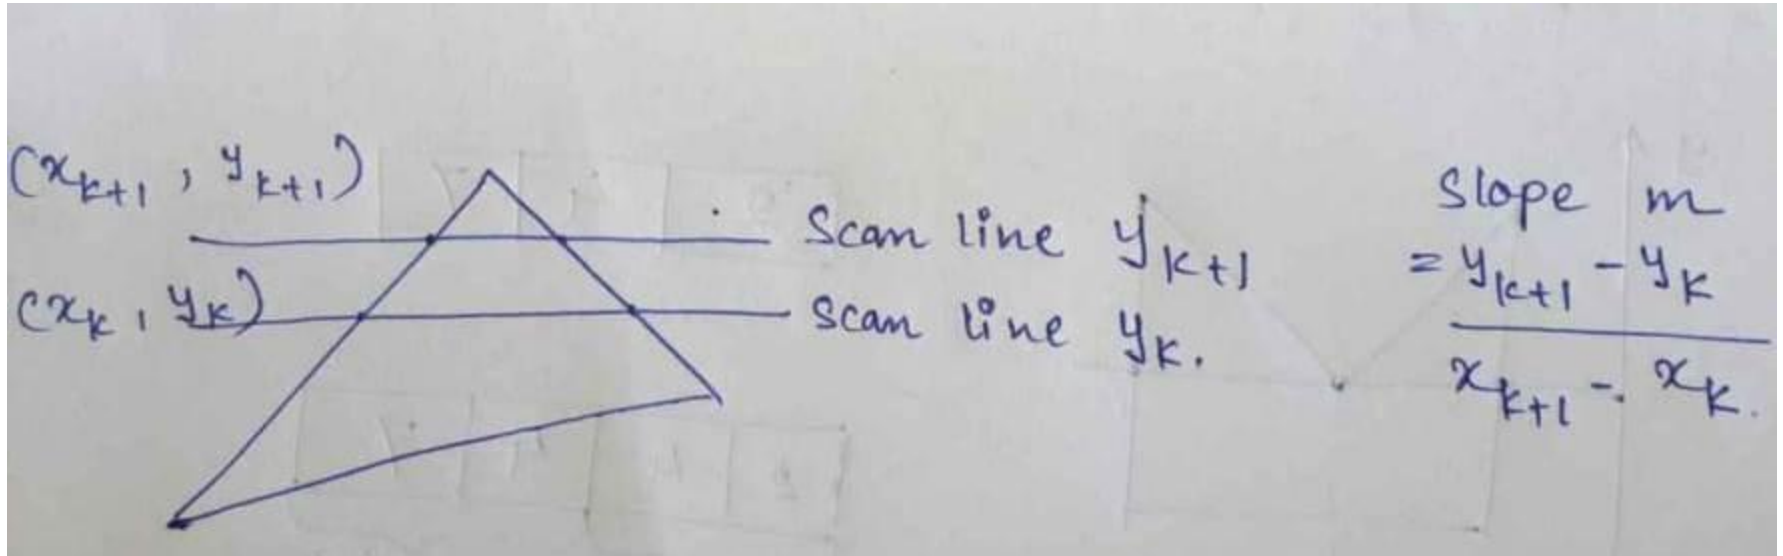 (x_{k+1}, y_{k+1})
Scan line y_{k+1}
(x_k, y_k)
Scan line y_k.
Slope m
= y_{k+1} - y_k
x_{k+1} - x_k.